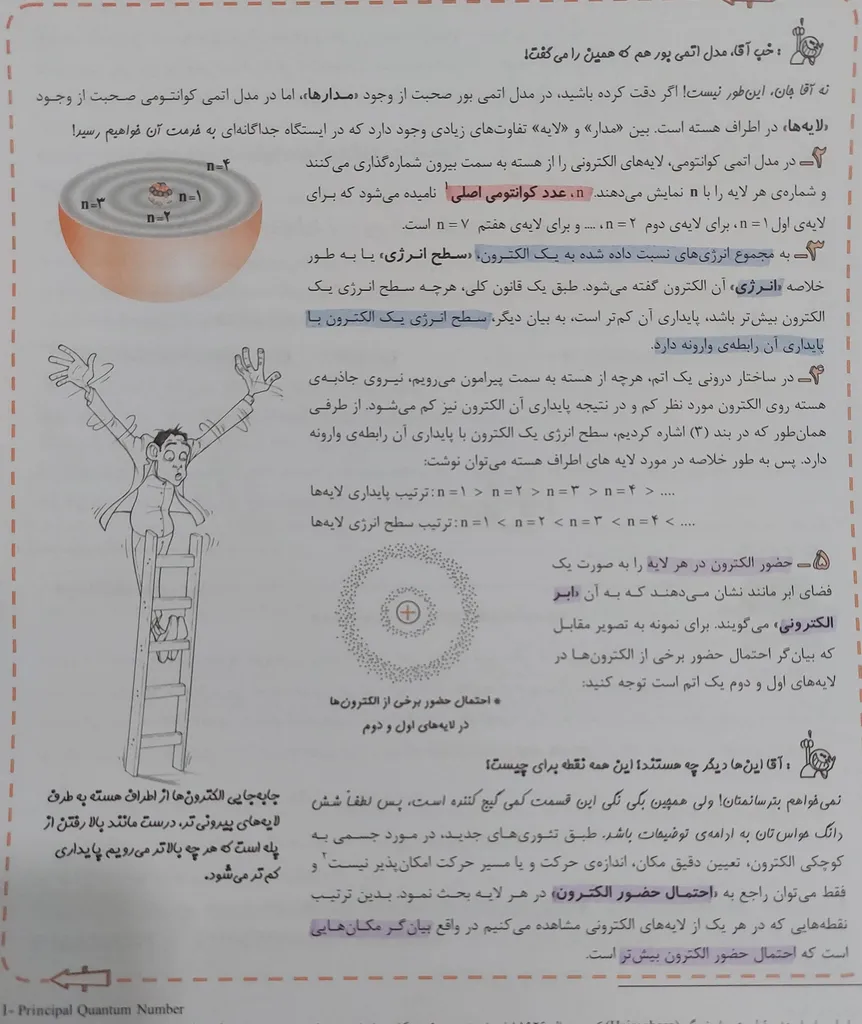 : خب آقا، مدل اتمی بور هم که همین را می‌گفت!
نه آقا جان، این‌طور نیست! اگر دقت کرده باشید، در مدل اتمی بور صحبت از وجود «مدارها»، اما در مدل اتمی کوانتومی صحبت از وجود
«لایه‌ها» در اطراف هسته است. بین «مدار» و «لایه» تفاوت‌های زیادی وجود دارد که در ایستگاه جداگانه‌ای به خدمت آن خواهیم رسید!
۲ــ در مدل اتمی کوانتومی، لایه‌های الکترونی را از هسته به سمت بیرون شماره‌گذاری می‌کنند
و شماره‌ی هر لایه را با n نمایش می‌دهند. n، عدد کوانتومی اصلی۱ نامیده می‌شود که برای
لایه‌ی اول n = ۱، برای لایه‌ی دوم n = ۲، .... و برای لایه‌ی هفتم n = ۷ است.
n=۴
n=۱
n=۳
n=۲
۳ــ به مجموع انرژی‌های نسبت داده شده به یک الکترون، «سطح انرژی» یا به طور
خلاصه «انرژی» آن الکترون گفته می‌شود. طبق یک قانون کلی، هرچه سطح انرژی یک
الکترون بیش‌تر باشد، پایداری آن کم‌تر است، به بیان دیگر، سطح انرژی یک الکترون با
پایداری آن رابطه‌ی وارونه دارد.
۴ــ در ساختار درونی یک اتم، هرچه از هسته به سمت پیرامون می‌رویم، نیروی جاذبه‌ی
هسته روی الکترون مورد نظر کم و در نتیجه پایداری آن الکترون نیز کم می‌شود. از طرفی
همان‌طور که در بند (۳) اشاره کردیم، سطح انرژی یک الکترون با پایداری آن رابطه‌ی وارونه
دارد. پس به طور خلاصه در مورد لایه های اطراف هسته می‌توان نوشت:
ترتیب پایداری لایه‌ها: n = ۱ > n = ۲ > n = ۳ > n = ۴ > ....
ترتیب سطح انرژی لایه‌ها: n = ۱ < n = ۲ < n = ۳ < n = ۴ < ....
۵ــ حضور الکترون در هر لایه را به صورت یک
فضای ابر مانند نشان می‌دهند که به آن «ابر
الکترونی» می‌گویند. برای نمونه به تصویر مقابل
که بیان‌گر احتمال حضور برخی از الکترون‌ها در
لایه‌های اول و دوم یک اتم است توجه کنید:
+
● احتمال حضور برخی از الکترون‌ها
در لایه‌های اول و دوم
جابه‌جایی الکترون‌ها از اطراف هسته به طرف
لایه‌های بیرونی تر، درست مانند بالا رفتن از
پله است که هر چه بالاتر می‌رویم پایداری
کم تر می‌شود.
: آقا این‌ها دیگر چه هستند؟ این همه نقطه برای چیست؟
نمی‌خواهم بترسانمتان! ولی همچین بگی نگی این قسمت کمی گیج کننده است، پس لطفاً شش
دانگ حواس‌تان به ادامه‌ی توضیحات باشد. طبق تئوری‌های جدید، در مورد جسمی به
کوچکی الکترون، تعیین دقیق مکان، اندازه‌ی حرکت و یا مسیر حرکت امکان‌پذیر نیست۲ و
فقط می‌توان راجع به «احتمال حضور الکترون» در هر لایه بحث نمود. بدین ترتیب
نقطه‌هایی که در هر یک از لایه‌های الکترونی مشاهده می‌کنیم در واقع بیان‌گر مکان‌هایی
است که احتمال حضور الکترون بیش‌تر است.
1- Principal Quantum Number